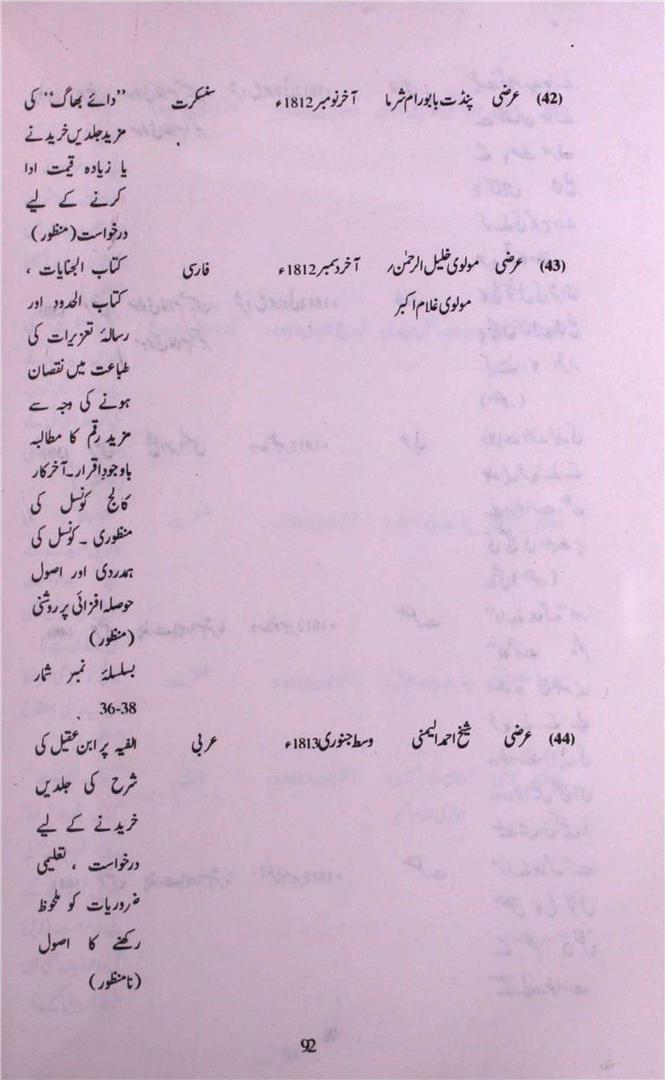 (42) عرضی پنڈت بابورام شرما آخر نومبر 1812ء سنسکرت ’’دائے بھاگ‘‘ کی
مزید جلدیں خریدنے
یا زیادہ قیمت ادا
کرنے کے لیے
درخواست (منظور)
(43) عرضی مولوی خلیل الرحمٰن / آخر دسمبر 1812ء فارسی کتاب الجنایات ،
مولوی غلام اکبر کتاب الحدود اور
رسالۂ تعزیرات کی
طباعت میں نقصان
ہونے کی وجہ سے
مزید رقم کا مطالبہ
باوجود اقرار۔ آخر کار
کالج کونسل کی
منظوری ۔ کونسل کی
ہمدردی اور اصول
حوصلہ افزائی پر روشنی
(منظور)
بسلسلۂ نمبر شمار
36-38
(44) عرضی شیخ احمد الیمنی وسط جنوری 1813ء عربی الفیہ پر ابن عقیل کی
شرح کی جلدیں
خریدنے کے لیے
درخواست ، تعلیمی
ضروریات کو ملحوظ
رکھنے کا اصول
(نامنظور)
92